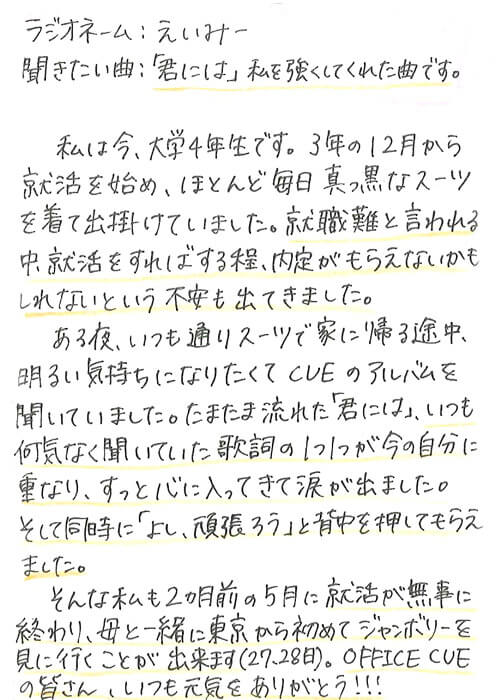 ラジオネーム：えいみー
聞きたい曲：「君には」私を強くしてくれた曲です。
私は今、大学4年生です。3年の12月から
就活を始め、ほとんど毎日真っ黒なスーツ
を着て出掛けていました。就職難と言われる
中、就活をすればする程、内定がもらえないかも
しれないという不安も出てきました。
ある夜、いつも通りスーツで家に帰る途中、
明るい気持ちになりたくてCUEのアルバムを
聞いていました。たまたま流れた「君には」、いつも
何気なく聞いていた歌詞の1つ1つが今の自分に
重なり、すっと心に入ってきて涙が出ました。
そして同時に「よし、頑張ろう」と背中を押してもらえ
ました。
そんな私も2カ月前の5月に就活が無事に
終わり、母と一緒に東京から初めてジャンボリーを
見に行くことが出来ます(27、28日)。OFFICE CUE
の皆さん、いつも元気をありがとう!!!